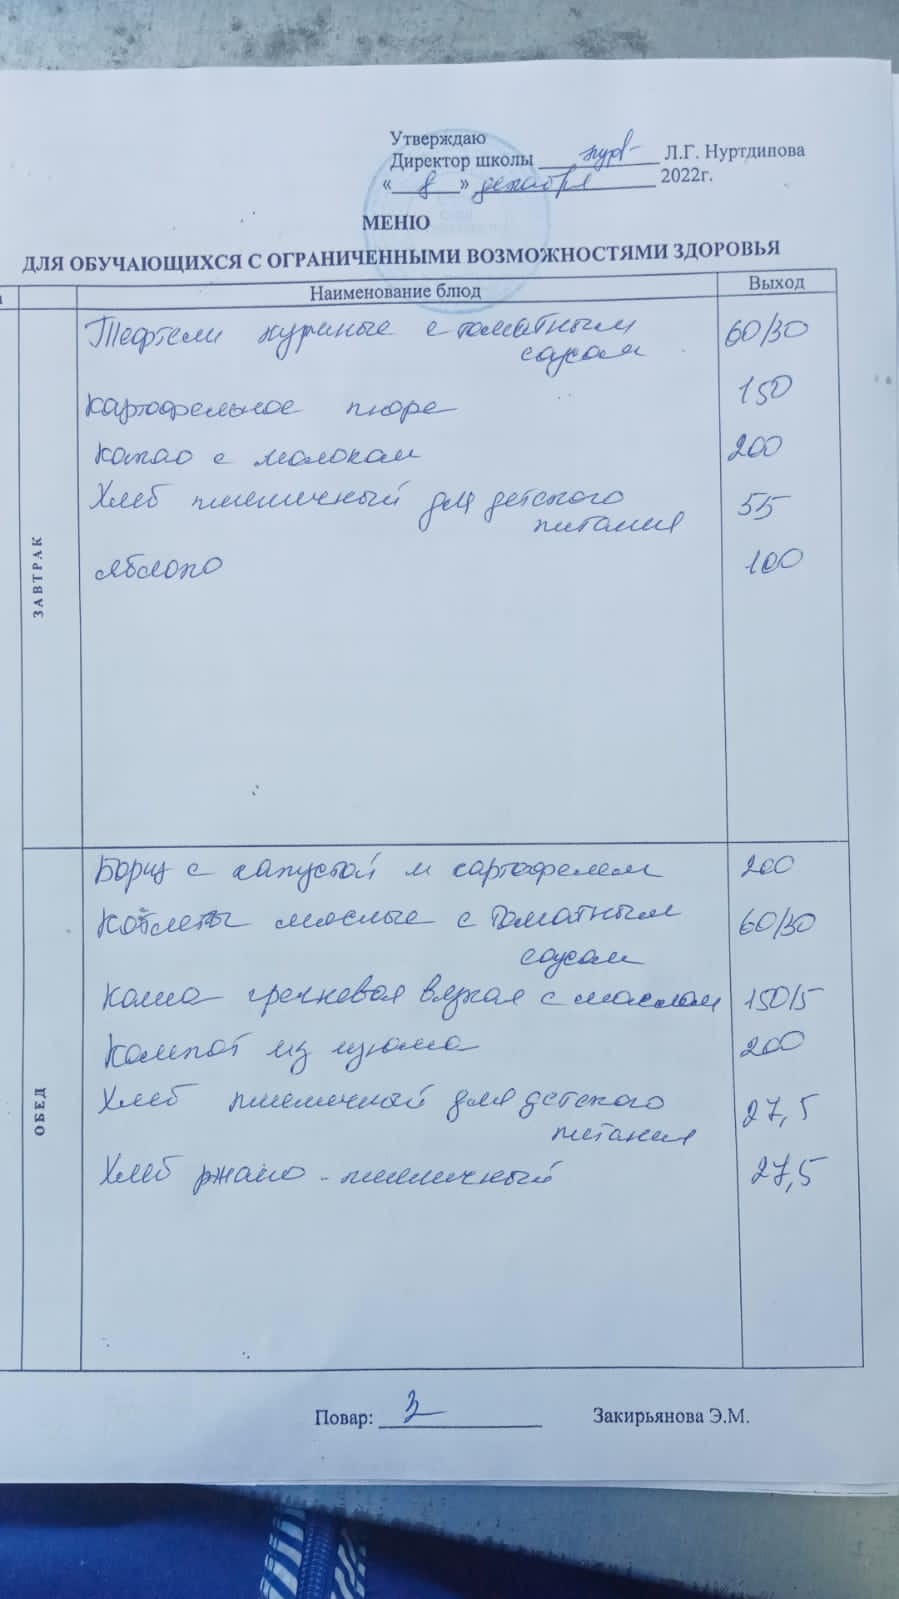 Утверждаю
Директор школы Л.Г. Нуртдинова
«8» декабря 2022г.
МЕНЮ
ДЛЯ ОБУЧАЮЩИХСЯ С ОГРАНИЧЕННЫМИ ВОЗМОЖНОСТЯМИ ЗДОРОВЬЯ
Наименование блюд Выход
ЗАВТРАК
Тефтели куриные с томатным 60/30
соусом
Картофельное пюре 150
Какао с молоком 200
Хлеб пшеничный для детского 55
питания
яблоко 100
ОБЕД
Борщ с капустой и картофелем 200
Котлеты мясные с томатным 60/30
соусом
Каша гречневая вязкая с маслом 150/5
Компот из изюма 200
Хлеб пшеничный для детского 27,5
питания
Хлеб ржано-пшеничный 27,5
Повар: Закирьянова Э.М.